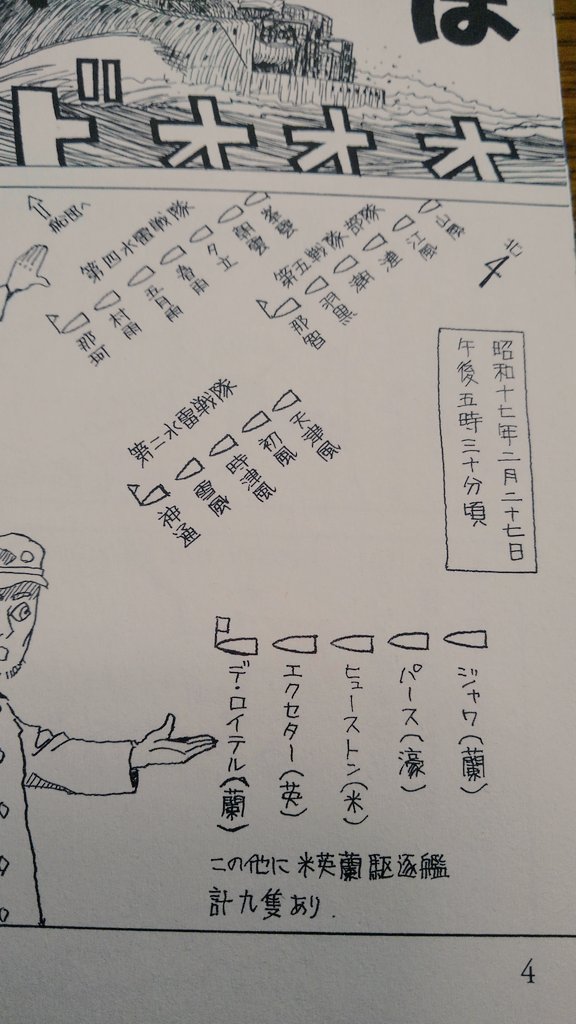 は
ドオオオ
北
輸送へ
第四水雷戦隊
那珂
村雨
五月雨
春雨
夕立
朝雲
峯雲
第五戦隊部隊
那智
羽黒
潮
漣
江風
山風
昭和十七年二月二十七日
午後五時三十分頃
第二水雷戦隊
神通
雪風
時津風
初風
天津風
ジャワ(蘭)
パース(濠)
ヒューストン(米)
エクセター(英)
デ・ロイテル(蘭)
この他に米英蘭駆逐艦
計九隻あり.
4